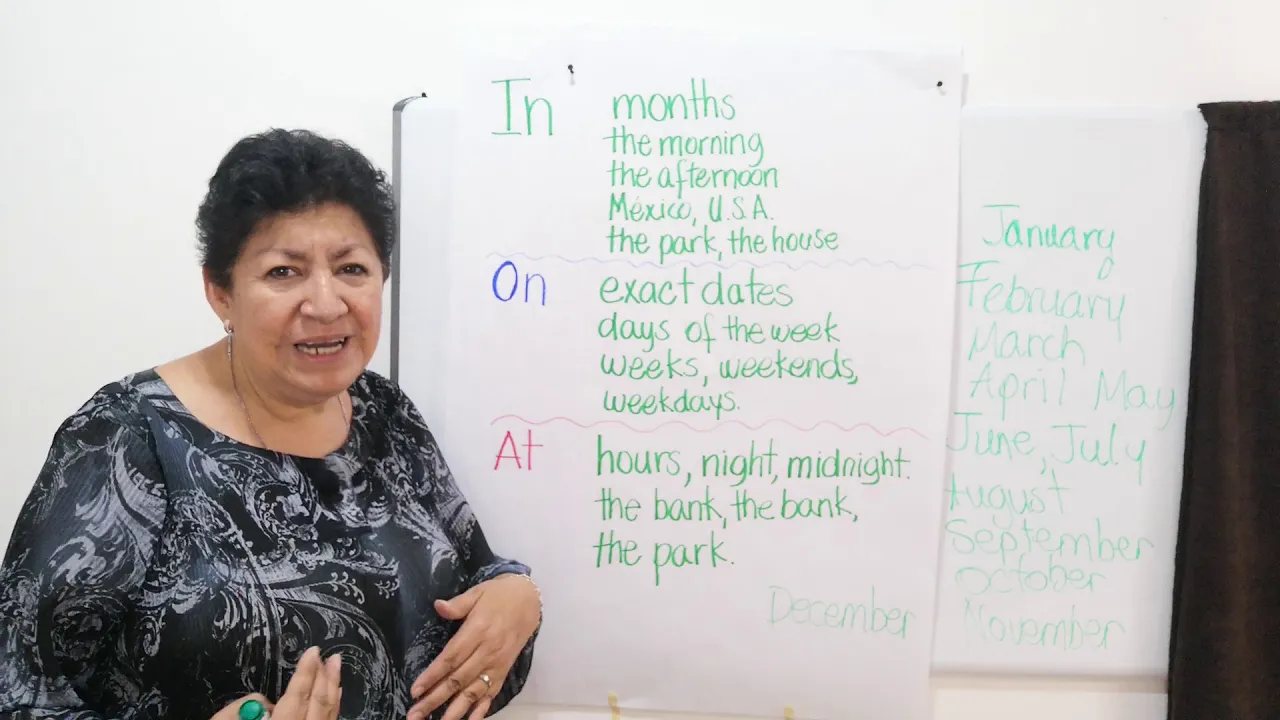 In months
the morning
the afternoon
México, U.S.A.
the park, the house
On exact dates
days of the week
weeks, weekends,
weekdays.
At hours, night, midnight.
the bank, the bank,
the park.
December
January
February
March
April May
June, July
August
September
October
November